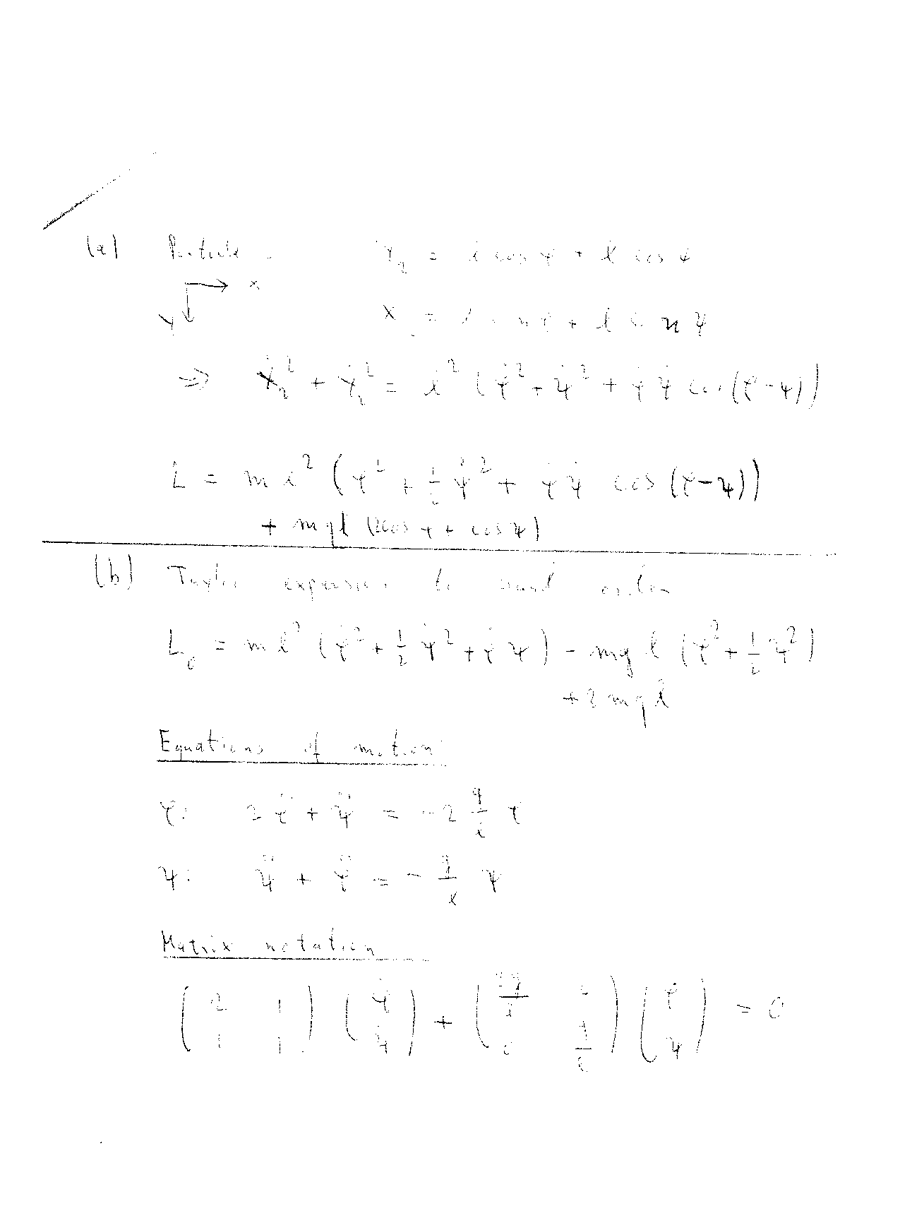 (a) Particle Y₂ = l cos φ + l cos ψ
→ x
y ↓ X = l sin φ + l sin ψ
⇒ Ẋ₂² + Ẏ₂² = l² (φ̇² + ψ̇² + φ̇ ψ̇ cos(φ-ψ))
L = m l² (φ̇² + ½ ψ̇² + φ̇ ψ̇ cos (φ-ψ))
+ mgl (2cos φ + cos ψ)
(b) Taylor expansion to second order
L₀ = m l² (φ̇² + ½ ψ̇² + φ̇ ψ̇) - mg l (φ² + ½ ψ²)
+ 3 mg l
Equations of motion:
φ: 2 φ̈ + ψ̈ = - 2 g/l φ
ψ: ψ̈ + φ̈ = - g/l ψ
Matrix notation
(2 1; 1 1) (φ̈; ψ̈) + (2g/l 0; 0 g/l) (φ; ψ) = 0